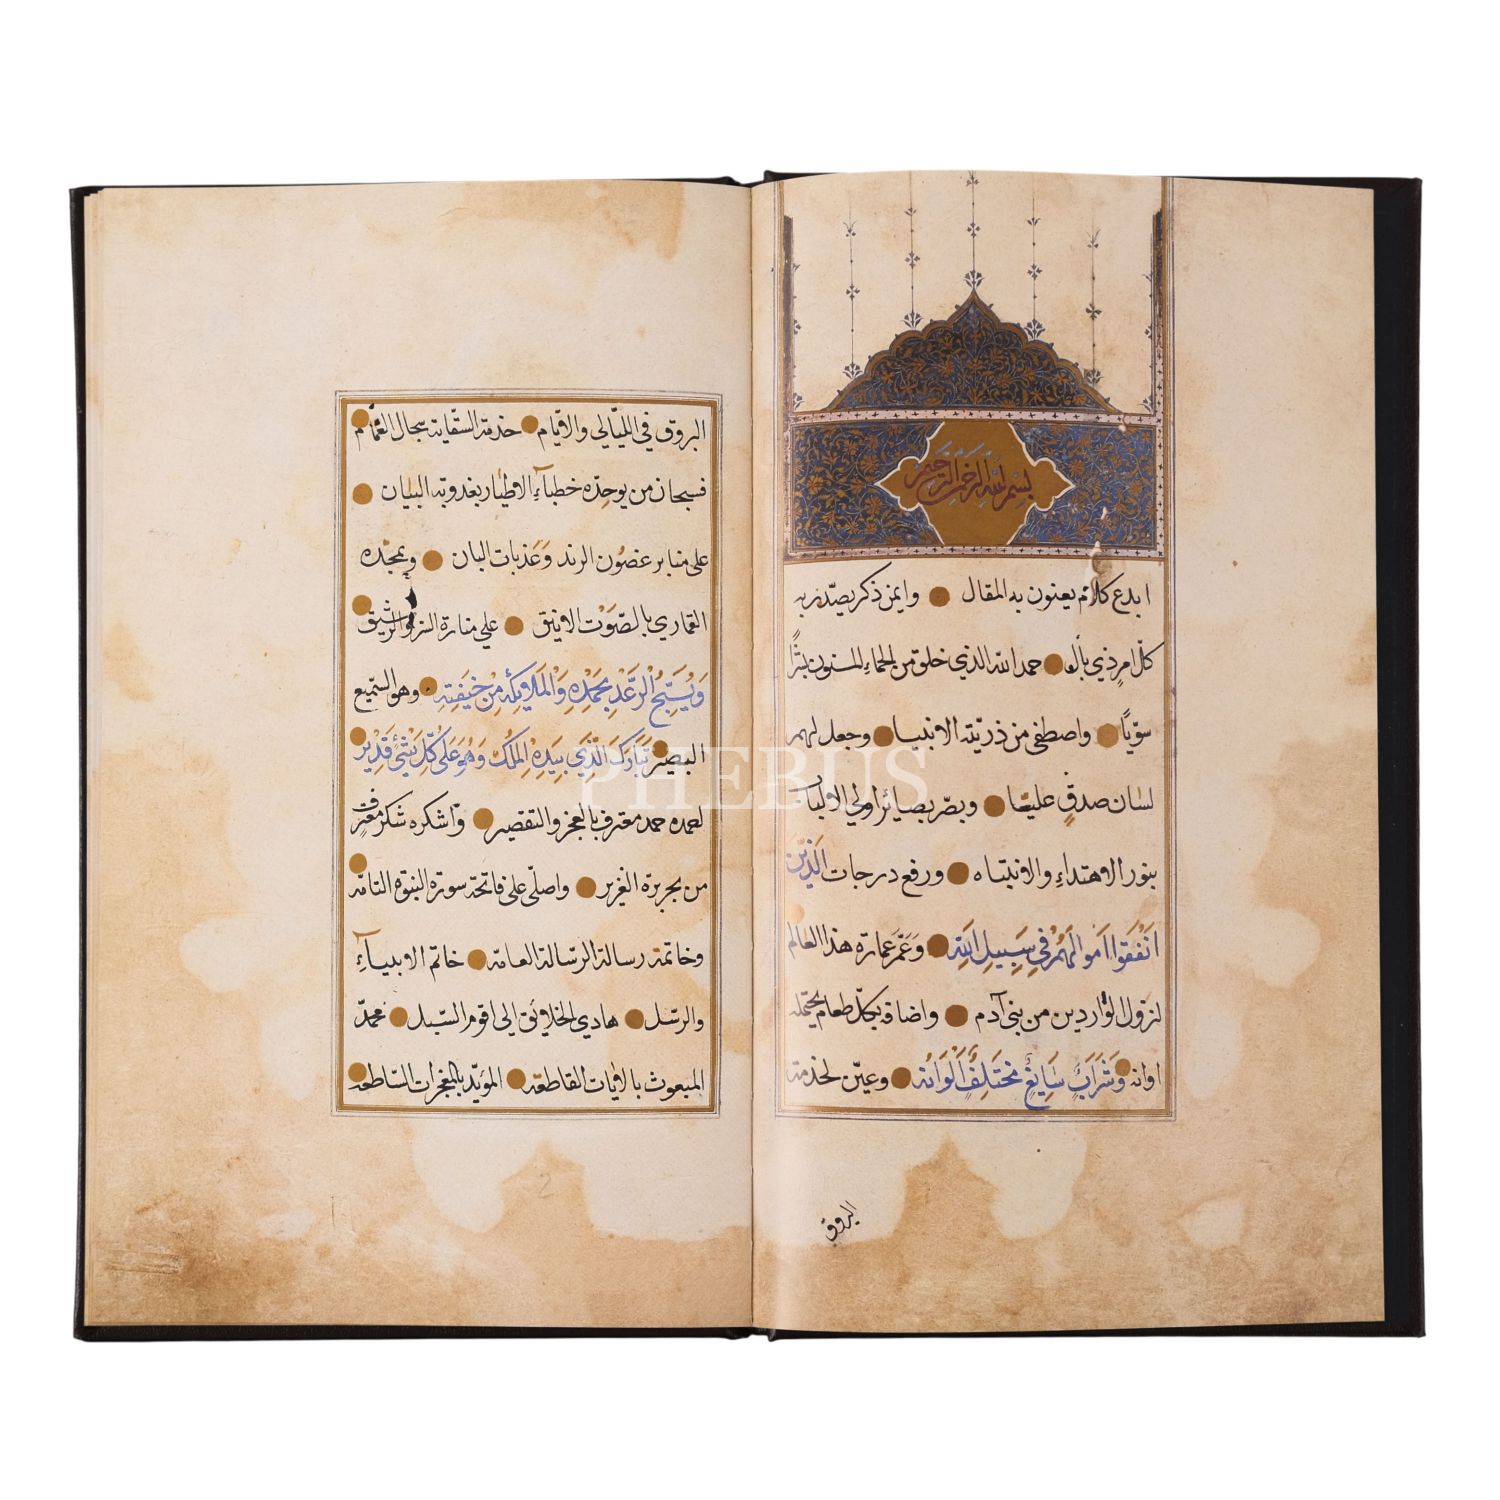 بسم الله الرحمن الرحيم
ابدع كلام يعنون به المقال وايمن ذكر يصدر به
كلّ امرٍ ذي بال حمد الله الذي خلق من الحماء المسنون بشرًا
سويًّا واصطفى من ذريته الانبياء وجعل لهم
لسان صدقٍ عليّا وبصّر بصائر اولي الالباب
بنور الاهتداءِ والانتباه ورفع درجات الَّذينَ
اَنْفَقوُا اَموالهُمْ في سَبِيلِ اللهِ وعَمّر عمارة هذا العالم
لنزول الواردين من بنى آدم واضافه بكلّ طعام يحتمله
اوانه وَشَرَابٍ سَايِغٍ مُختَلِفٍ اَلْوَانُه وعيّن لخدمة
البروق
البروق في الليالي والايّام خدمة السقاية سجال الغمام
فسبحان من يوحّده خطباءِ الاطيار بغدوبة البيان
على منابر غصُون الرند وعَذبات البان ويمجّده
القماري بالصّوْت الانيق علي منارة السرو الرشيق
وَيُسَبِّحُ الرَّعْدِ بِحَمْدِهِ وَالمَلاَئِكَة مِنْ خيَفَتِهِ وهو السّميع
البصير تَبَارَكَ الَّذِي بِيَدِهِ المُلكُ وَهُوَ عَلى كُلّ شَيْئٍ قَدِيْر
احمده حمد معترف بالعجز والتقصير واشكره شكر مغترف
من بحر بره الغزير واصلّى على فاتحة سورة النبوّة التامّة
وخاتمة رسالة الرسالة العامّة خاتم الانبياءِ
والرسّل هادي الخلايق الى اقوم السّبيل محمّد
المبعوث بالايات القاطعة المؤيّد بالمعجزات السّاطعة
2
PHEBUS